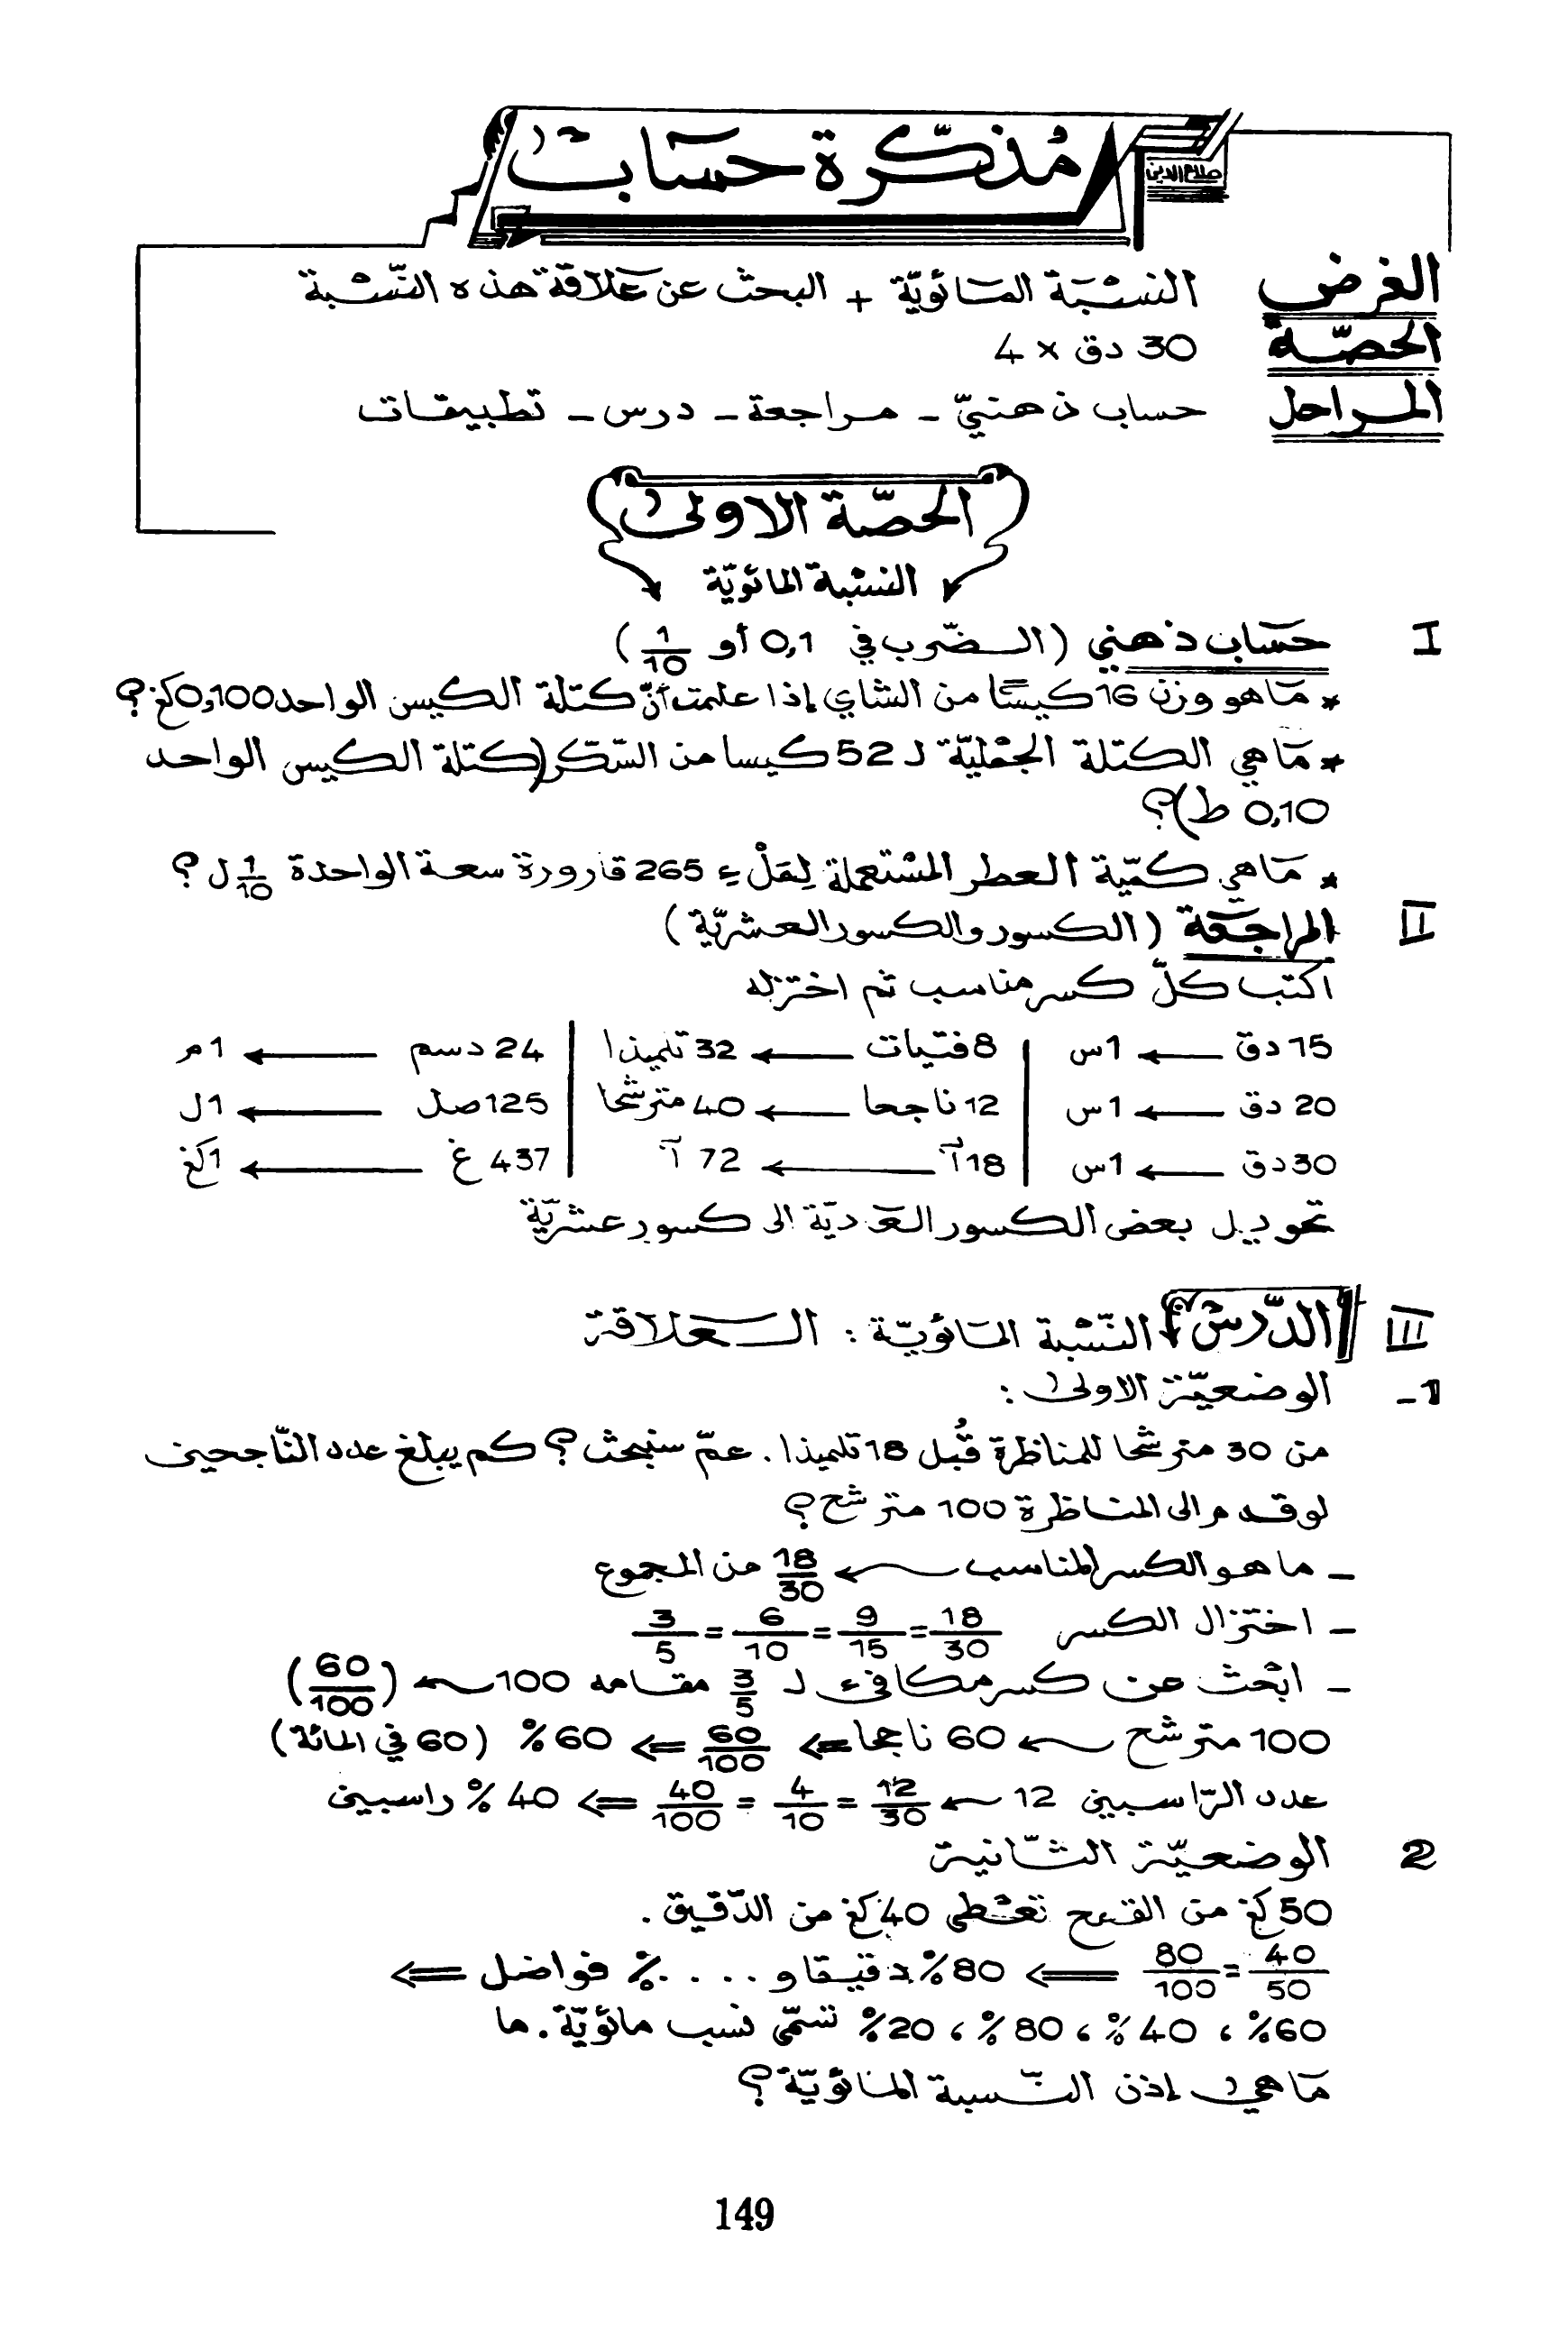 مُذكّرة حساب
صلاح الدين
الغرض النسبة المائويّة + البحث عن علاقة هذه النّسبة
الحصّة 30 دق × 4
المراحل حساب ذهنيّ - مراجعة - درس - تطبيقات
الحصّة الاولى
النسبة المائويّة
I حساب ذهني (الضّرب في 0,1 أو 1/10)
* ما هو وزن 16 كيسًا من الشاي إذا علمت أنّ كتلة الكيس الواحد 0,100 كغ؟
* ما هي الكتلة الجمليّة لـ 52 كيسا من السّكر (كتلة الكيس الواحد
0,10 ط)؟
* ما هي كمّية العطر المستعملة لِمَلْءِ 265 قارورة سعة الواحدة 1/10 ل؟
II المراجعة (الكسور والكسور العشريّة)
اكتب كلّ كسر مناسب ثم اختزله
15 دق ← 1 س | 8 فتيات ← 32 تلميذا | 24 دسم ← 1 م
20 دق ← 1 س | 12 ناجحا ← 40 مترشحا | 125 صل ← 1 ل
30 دق ← 1 س | 18 آ ← 72 آ | 437 غ ← 1 كغ
تحويل بعض الكسور العاديّة الى كسور عشريّة
III الدّرس النّسبة المائويّة : العلاقة
1- الوضعيّة الاولى :
من 30 مترشحا للمناظرة قُبل 18 تلميذا. عمّ سنبحث؟ كم يبلغ عدد النّاجحين
لو قدم الى المناظرة 100 مترشح؟
- ما هو الكسر المناسب ← 18/30 من المجموع
- اختزال الكسر 18/30 = 9/15 = 6/10 = 3/5
- ابحث عن كسر مكافئ لـ 3/5 مقامه 100 ← (60/100)
100 مترشح ← 60 ناجحا ⇐ 60/100 ⇐ 60 % (60 في المائة)
عدد الرّاسبين 12 ← 12/30 = 4/10 = 40/100 ⇐ 40 % راسبين
2 الوضعيّة الثّانية
50 كغ من القمح تعطي 40 كغ من الدّقيق.
40/50 = 80/100 ⇐ 80% دقيقا و .... % فواضل ⇐
60% ، 40 % ، 80 % ، 20% تسمّى نسب مائويّة. ما
ما هي إذن النّسبة المائويّة؟
149